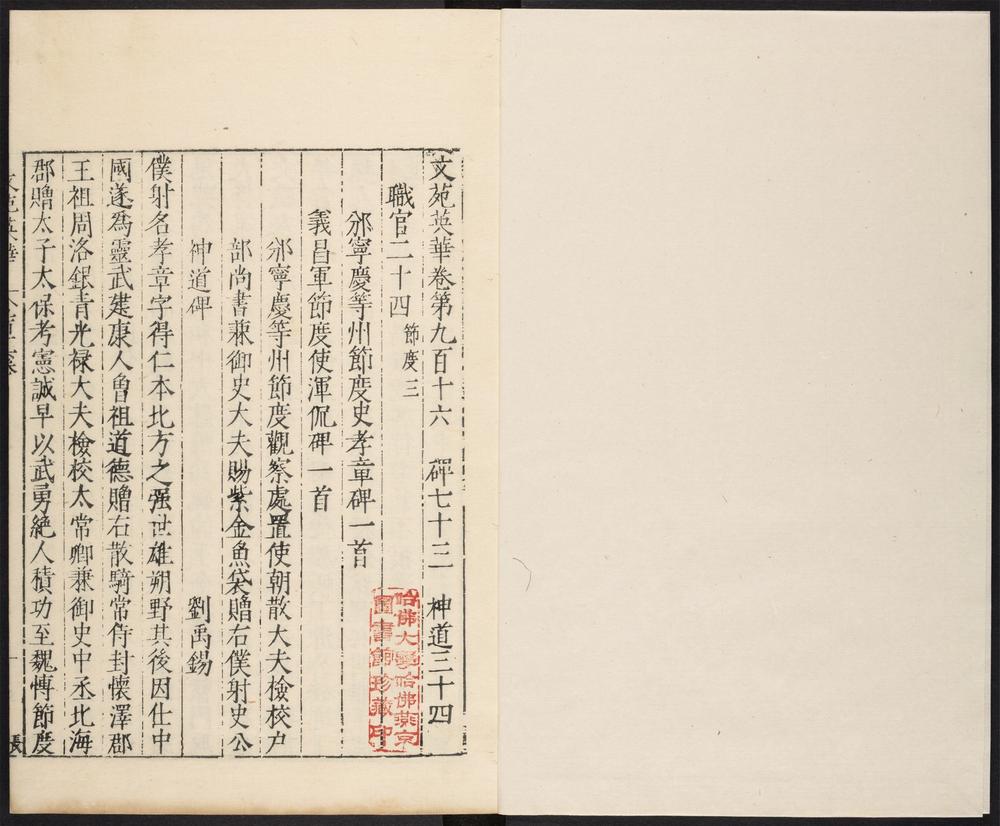 文苑英華卷第九百十六　碑七十三　神道三十四
職官二十四　節度三
邠寧慶等州節度史孝章碑一首
義昌軍節度使渾侃碑一首
邠寧慶等州節度觀察處置使朝散大夫檢校户
部尚書兼御史大夫賜紫金魚袋贈右僕射史公
神道碑　劉禹錫
僕射名孝章字得仁本北方之强世雄朔野其後因仕中
國遂爲靈武建康人曾祖道德贈右散騎常侍封懷澤郡
王祖周洛銀青光禄大夫檢校太常卿兼御史中丞北海
郡贈太子太保考憲誠早以武勇絶人積功至魏博節度
哈佛大學哈佛燕京
圖書館珍藏印
文苑英華
張